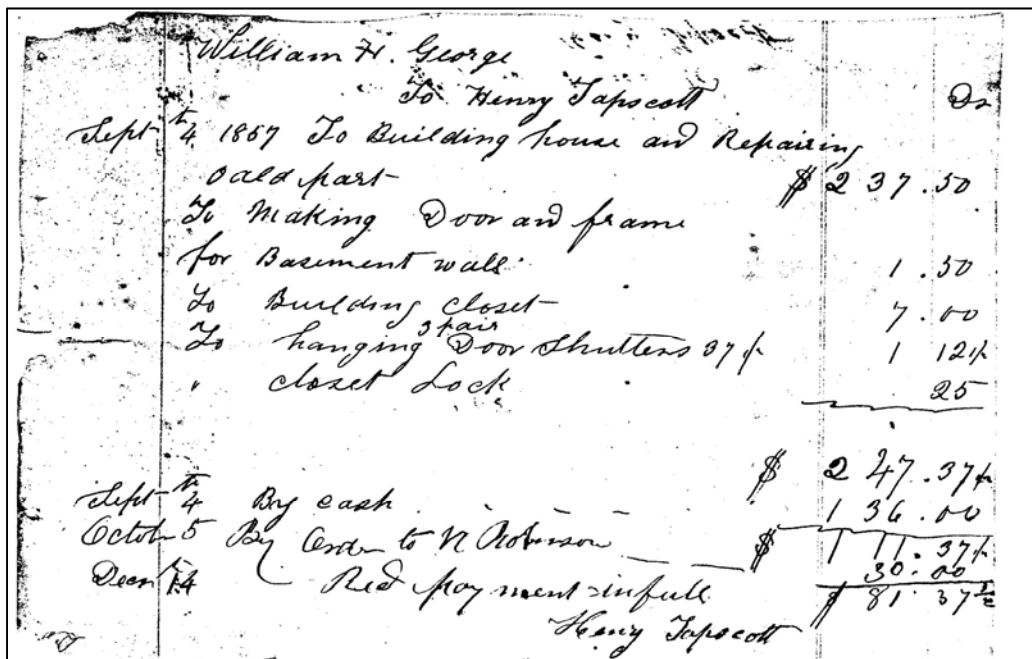 William H. George
To Henry Tapscott Dr
Sept 4th 1867 To Building house and Repairing
oald part $ 237.50
To Making Door and frame
for Basement wall 1.50
To Building closet 7.00
3 pair
To hanging Door Shutters 37½ 1 12½
" closet Lock 25
$ 247.37½
Sept 4th By cash 136.00
Octob 5 By Order to N Robinson $ 111.37½
30.00
Decr 14 Recd payment in full $ 81.37½
Henry Tapscott